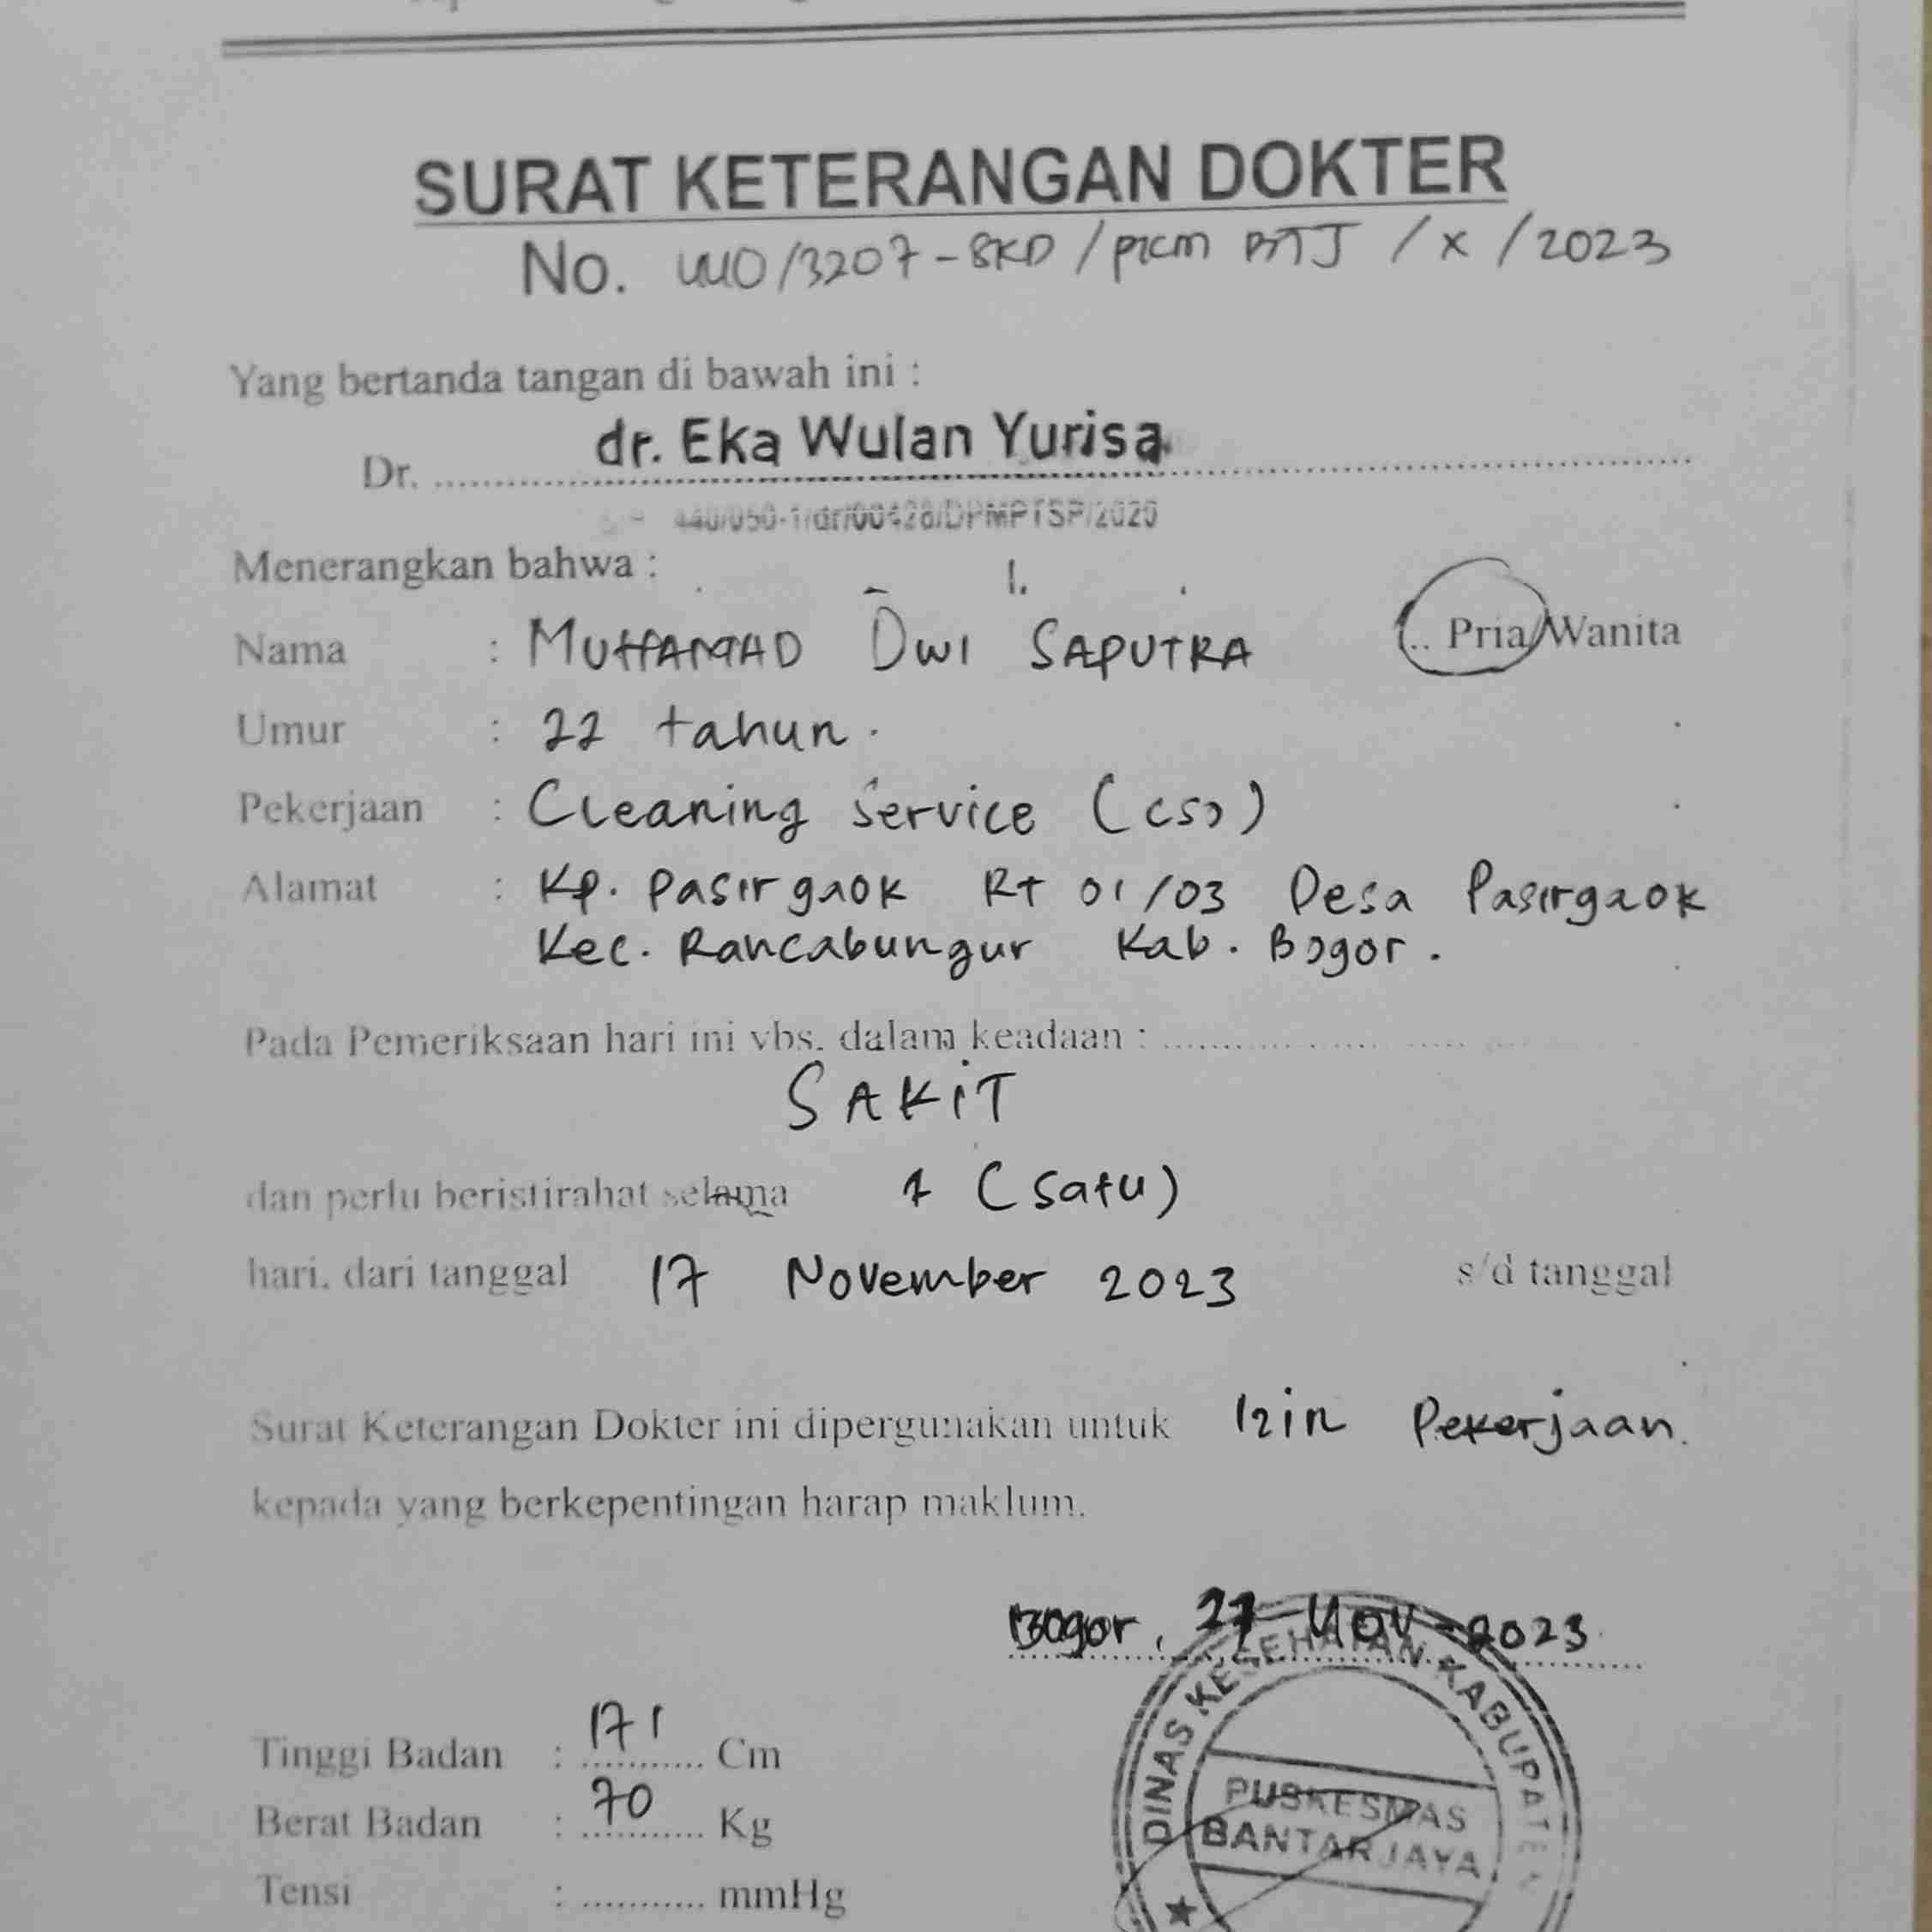 SURAT KETERANGAN DOKTER
No. 440/3207-SKD/PKM BTJ /X/2023
Yang bertanda tangan di bawah ini :
Dr. dr. Eka Wulan Yurisa
440/050-1/dr/00428/DPMPTSP/2020
Menerangkan bahwa :
Nama : MUHAMAD DWI SAPUTRA Pria/Wanita
Umur : 22 tahun.
Pekerjaan : Cleaning Service (CSO)
Alamat : Kp. Pasir gaok Rt 01/03 Desa Pasirgaok
Kec. Rancabungur Kab. Bogor.
Pada Pemeriksaan hari ini ybs. dalam keadaan :
SAKIT
dan perlu beristirahat selama 1 (satu)
hari. dari tanggal 17 November 2023 s/d tanggal
Surat Keterangan Dokter ini dipergunakan untuk Izin Pekerjaan.
kepada yang berkepentingan harap maklum.
Bogor, Nov 2023
Tinggi Badan : 171 Cm
Berat Badan : 70 Kg
Tensi : mmHg
DINAS KESEHATAN KABUPATEN
PUSKESMAS
BANTARJAYA